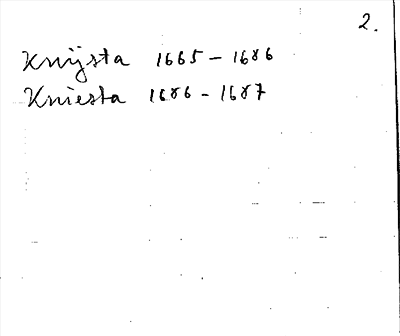 2.
Knijsta 1665 - 1686
Kniesta 1686 - 1687